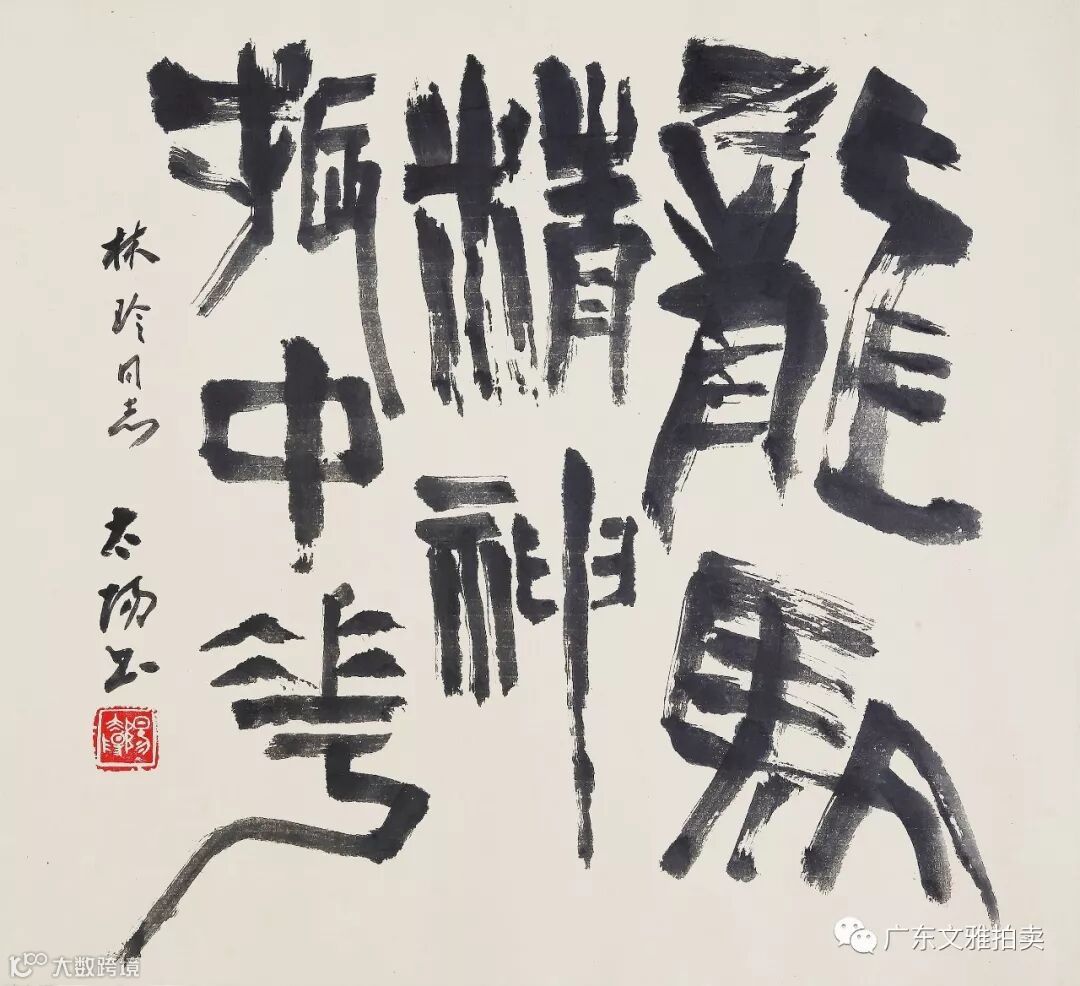 龍馬
精神
振中華
林玲同志
太陽书
广东文雅拍卖
大数跨境